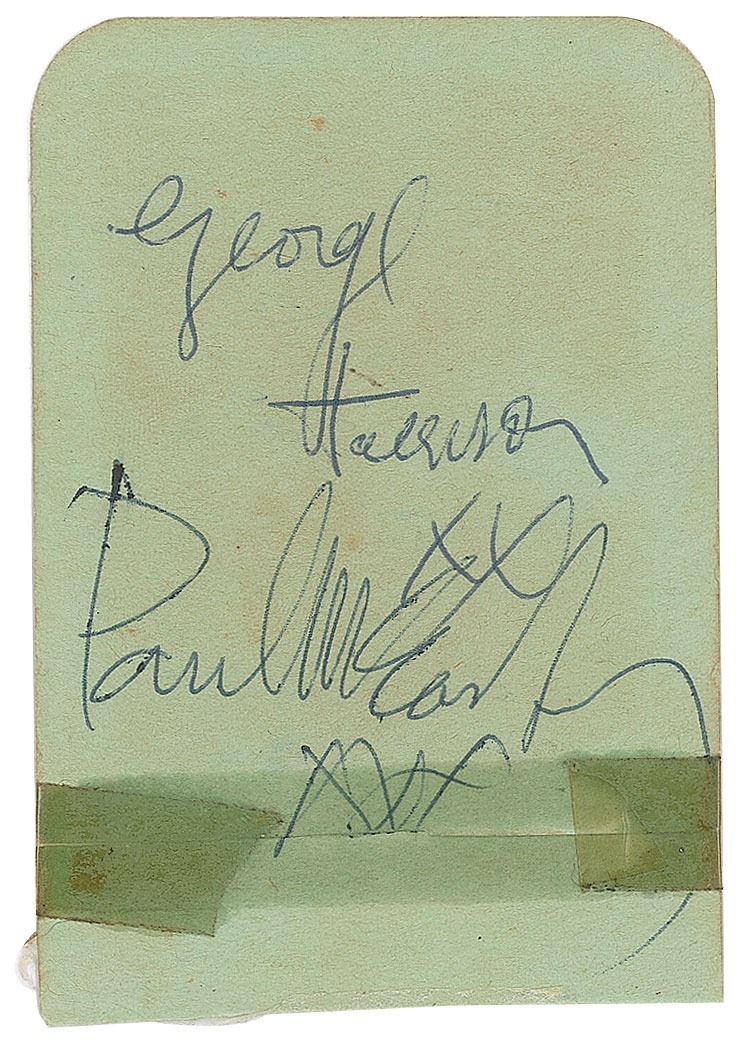 George
Harrison
XX
Paul McCartney
XXX